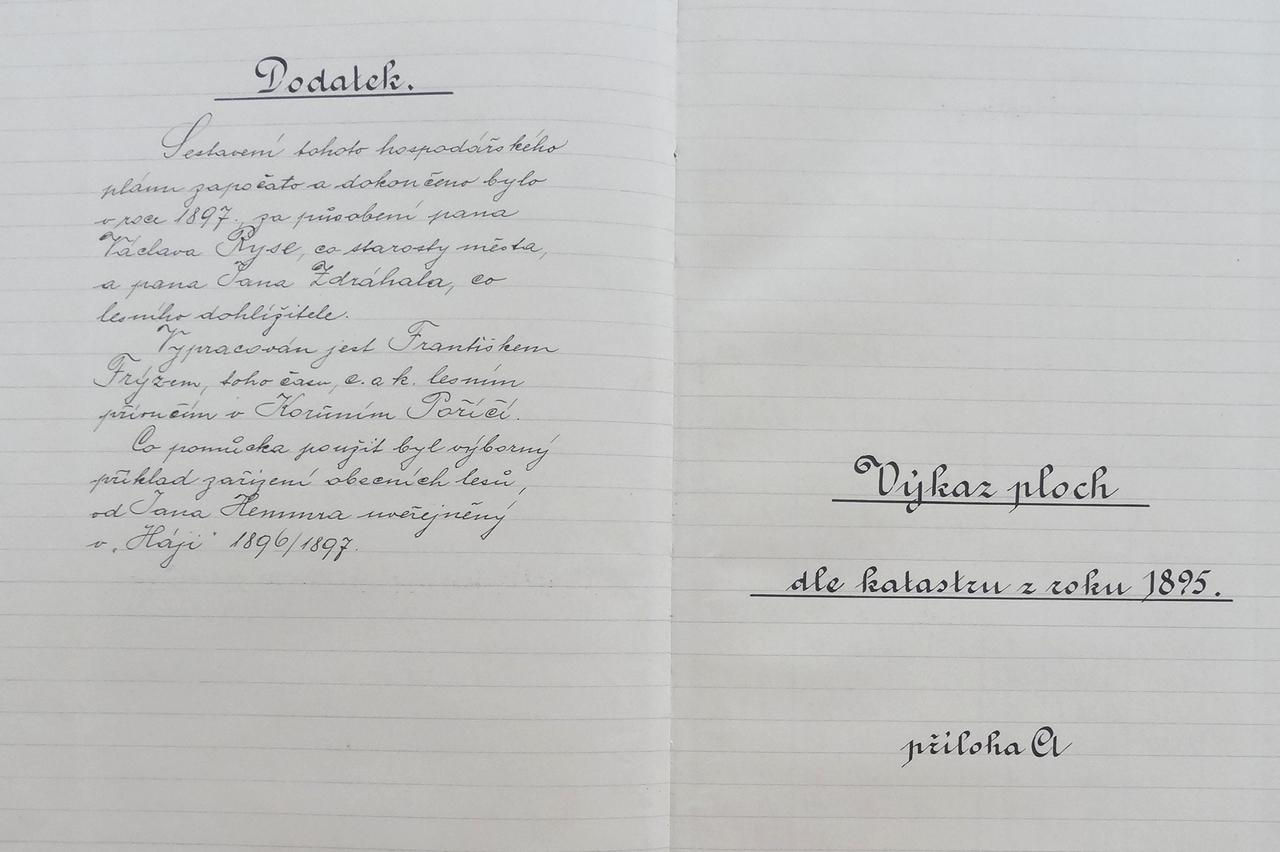 Dodatek.
Sestavení tohoto hospodářského
plánu započato a dokončeno bylo
v roce 1897., za působení pana
Václava Ryse, co starosty města,
a pana Jana Zdráhala, co
lesního dohlížitele.
Vypracován jest Františkem
Frýzem, toho času, c. a k. lesním
příručím v Koruním Poříčí.
Co pomůcka použit byl výborný
příklad zařízení obecních lesů,
od Jana uveřejněný
v „Háji" 1896/1897.
Výkaz ploch
dle katastru z roku 1895.
příloha A